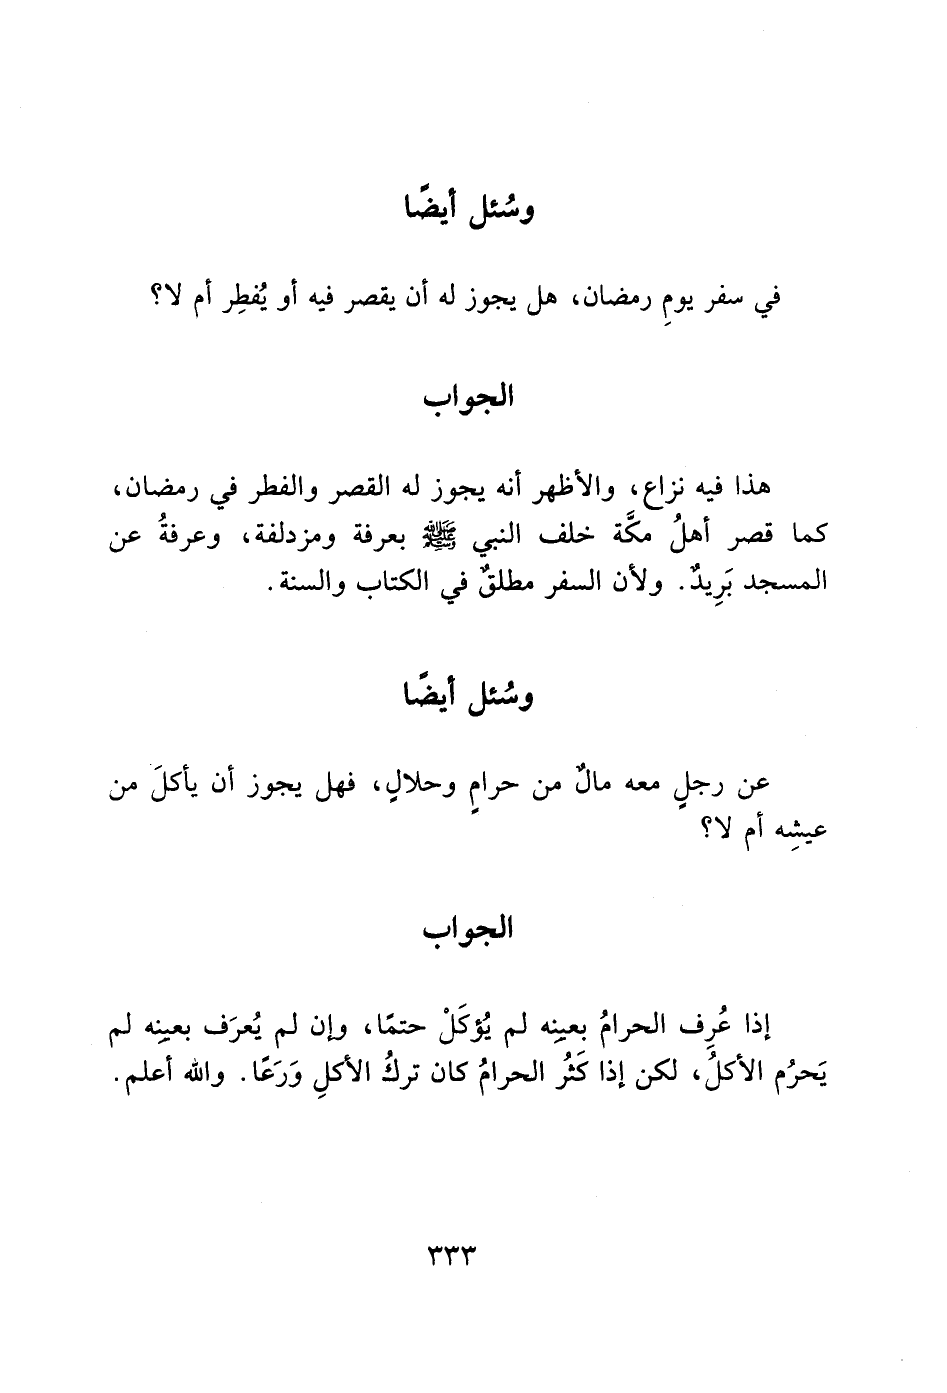 وسُئل أيضًا
في سفر يومِ رمضان، هل يجوز له أن يقصر فيه أو يُفطِر أم لا؟
الجواب
هذا فيه نزاع، والأظهر أنه يجوز له القصر والفطر في رمضان،
كما قصر أهلُ مكَّة خلف النبي ﷺ بعرفة ومزدلفة، وعرفةُ عن
المسجد بَرِيدٌ. ولأن السفر مطلقٌ في الكتاب والسنة.
وسُئل أيضًا
عن رجلٍ معه مالٌ من حرامٍ وحلالٍ، فهل يجوز أن يأكلَ من
عيشِه أم لا؟
الجواب
إذا عُرِف الحرامُ بعينِه لم يُؤكَلْ حتمًا، وإن لم يُعرَف بعينِه لم
يَحرُم الأكلُ، لكن إذا كَثُر الحرامُ كان تركُ الأكلِ وَرَعًا. والله أعلم.
٣٣٣